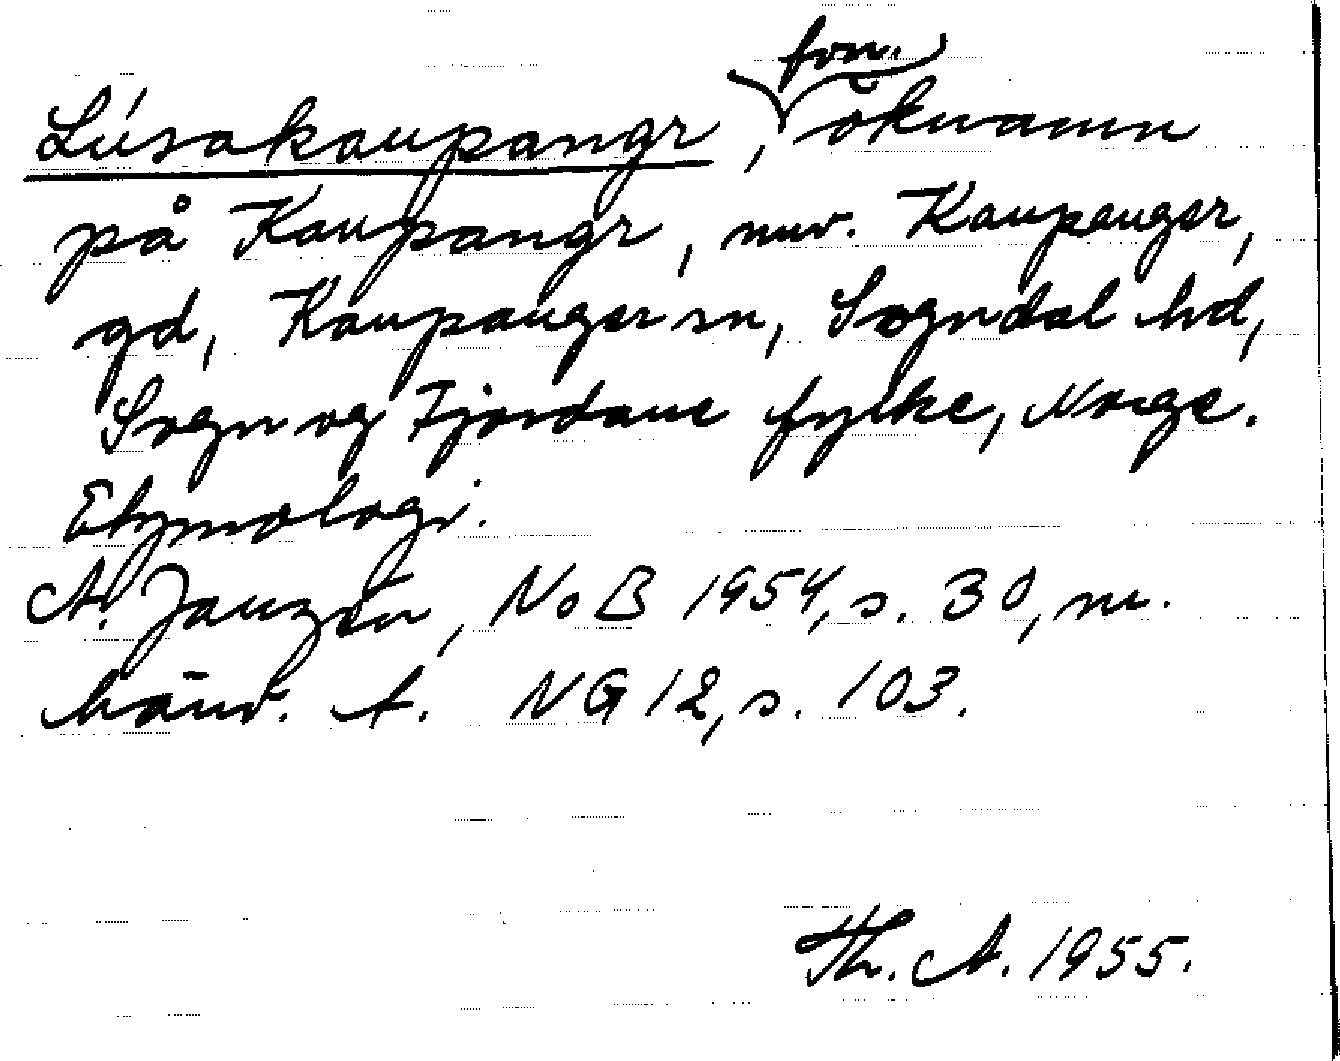 Lúsakaupangr, forn. öknamn
på Kaupangr, nuv. Kaupanger,
gd, Kaupanger sn, Sogndal hd,
Sogn og Fjordane fylke, Norge.
Etymologi.
A. Janzén, NoB 1954, s. 30, m.
hänv. t. NG 12, s. 103.
Th. A. 1955.